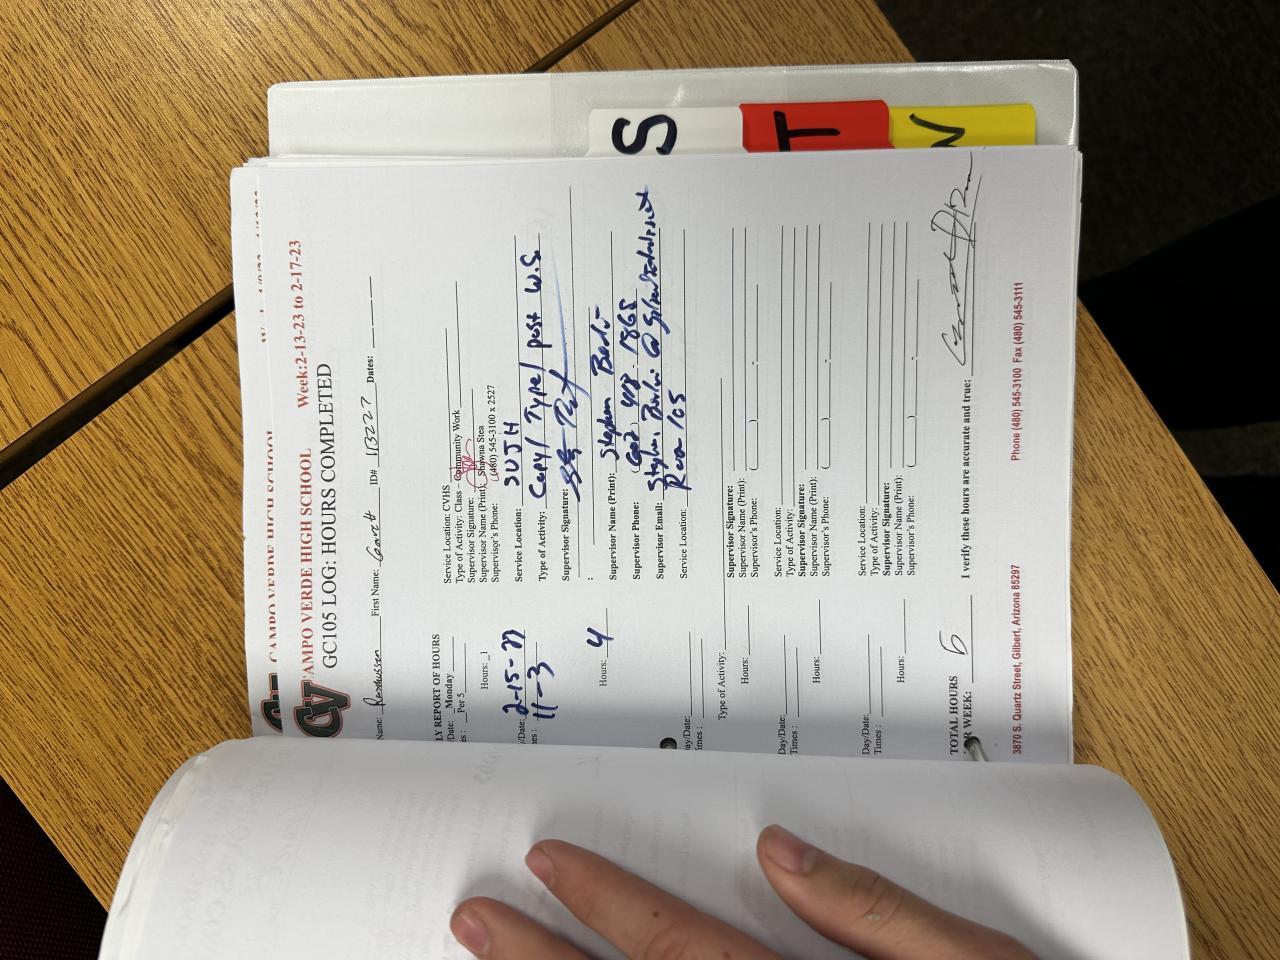 S
T
CAMPO VERDE HIGH SCHOOL
CV
CAMPO VERDE HIGH SCHOOL Week:2-13-23 to 2-17-23
GC105 LOG: HOURS COMPLETED
Name: Rasmussen First Name: Garett ID# Dates:
LY REPORT OF HOURS
/Date: Monday Service Location: CVHS
Per 5 Type of Activity: Class – Community Work
Supervisor Signature:
Hours: 1 Supervisor Name (Print): Shawna Stea
Supervisor's Phone: (480) 545-3100 x 2527
Service Location: SVJH
11-3 Type of Activity: Copy / Type / post W.S.
Supervisor Signature:
:
Hours: 4 Supervisor Name (Print): Stephen
Supervisor Phone:
Supervisor Email:
Service Location: Room 105
ay/Date:
imes :
Type of Activity:
Hours: Supervisor Signature:
Supervisor Name (Print):
Supervisor's Phone: ( ) -
Day/Date: Service Location:
Times : Type of Activity:
Supervisor Signature:
Hours: Supervisor Name (Print):
Supervisor's Phone: ( ) -
Day/Date: Service Location:
Times : Type of Activity:
Supervisor Signature:
Hours: Supervisor Name (Print):
Supervisor's Phone: ( ) -
TOTAL HOURS
R WEEK: I verify these hours are accurate and true:
3870 S. Quartz Street, Gilbert, Arizona 85297 Phone (480) 545-3100 Fax (480) 545-3111